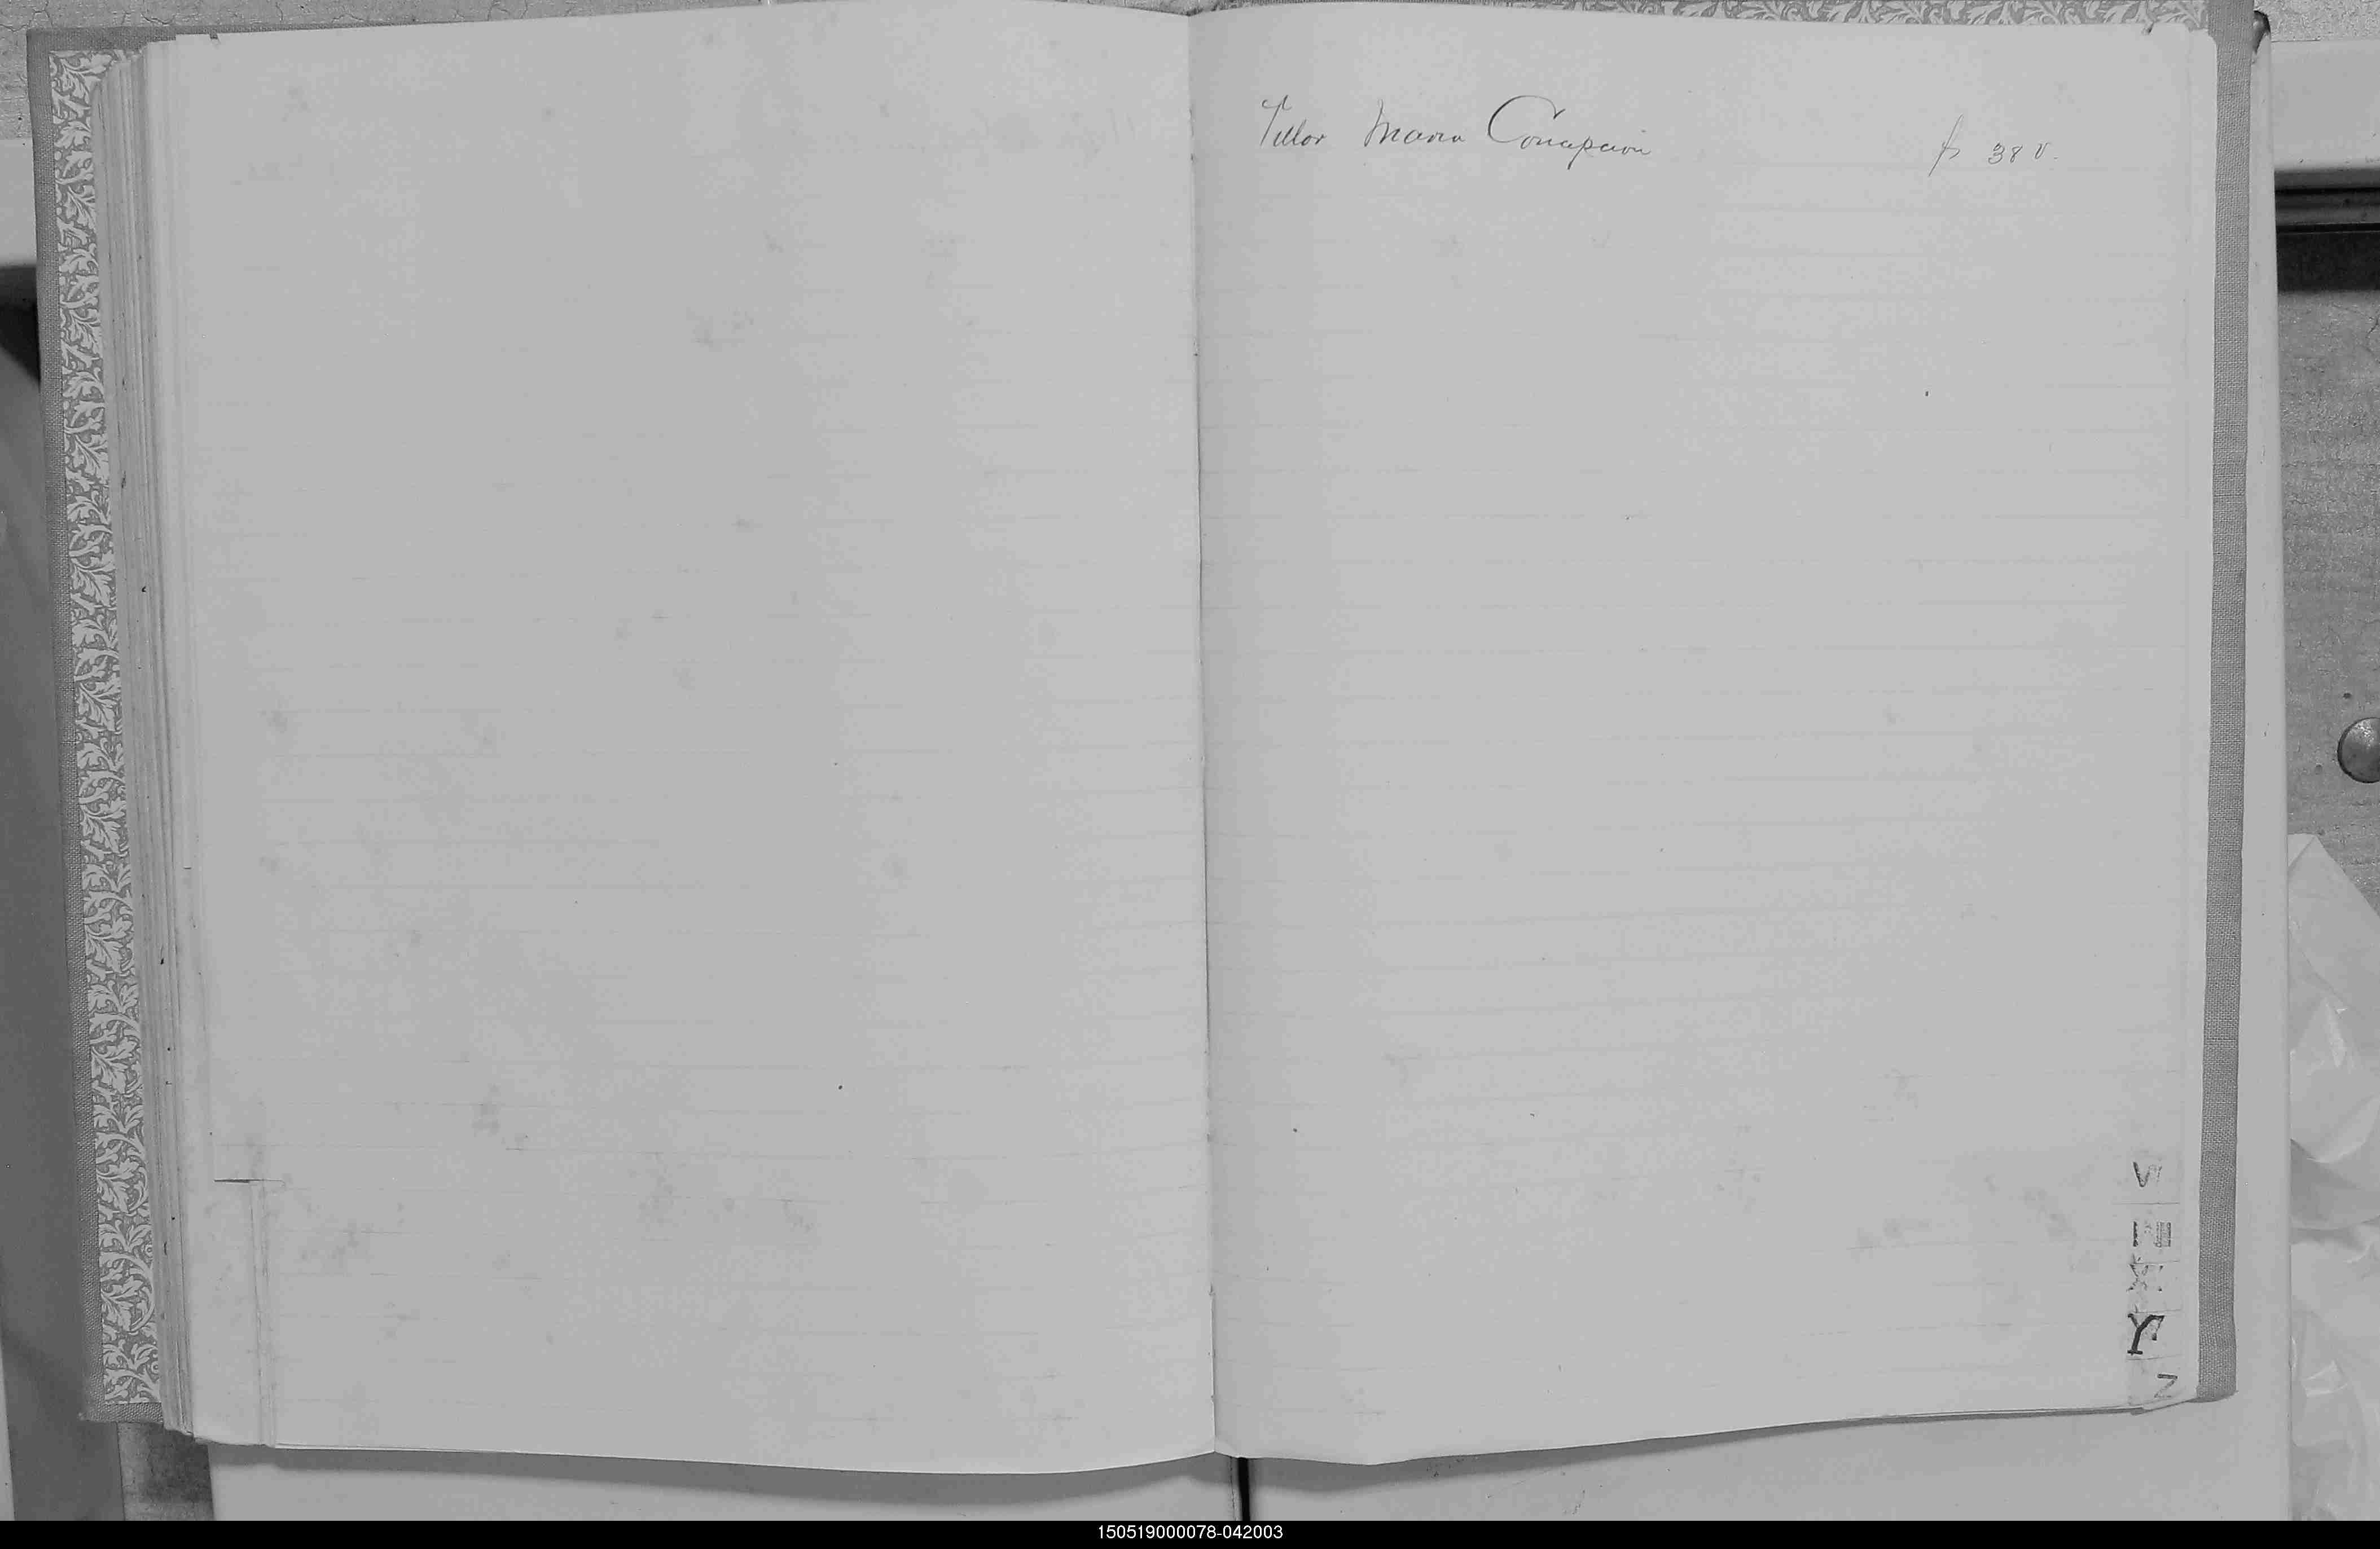 Villar Maria Concepcion fs 38 v.
V
X
Y
Z
150519000078-042003